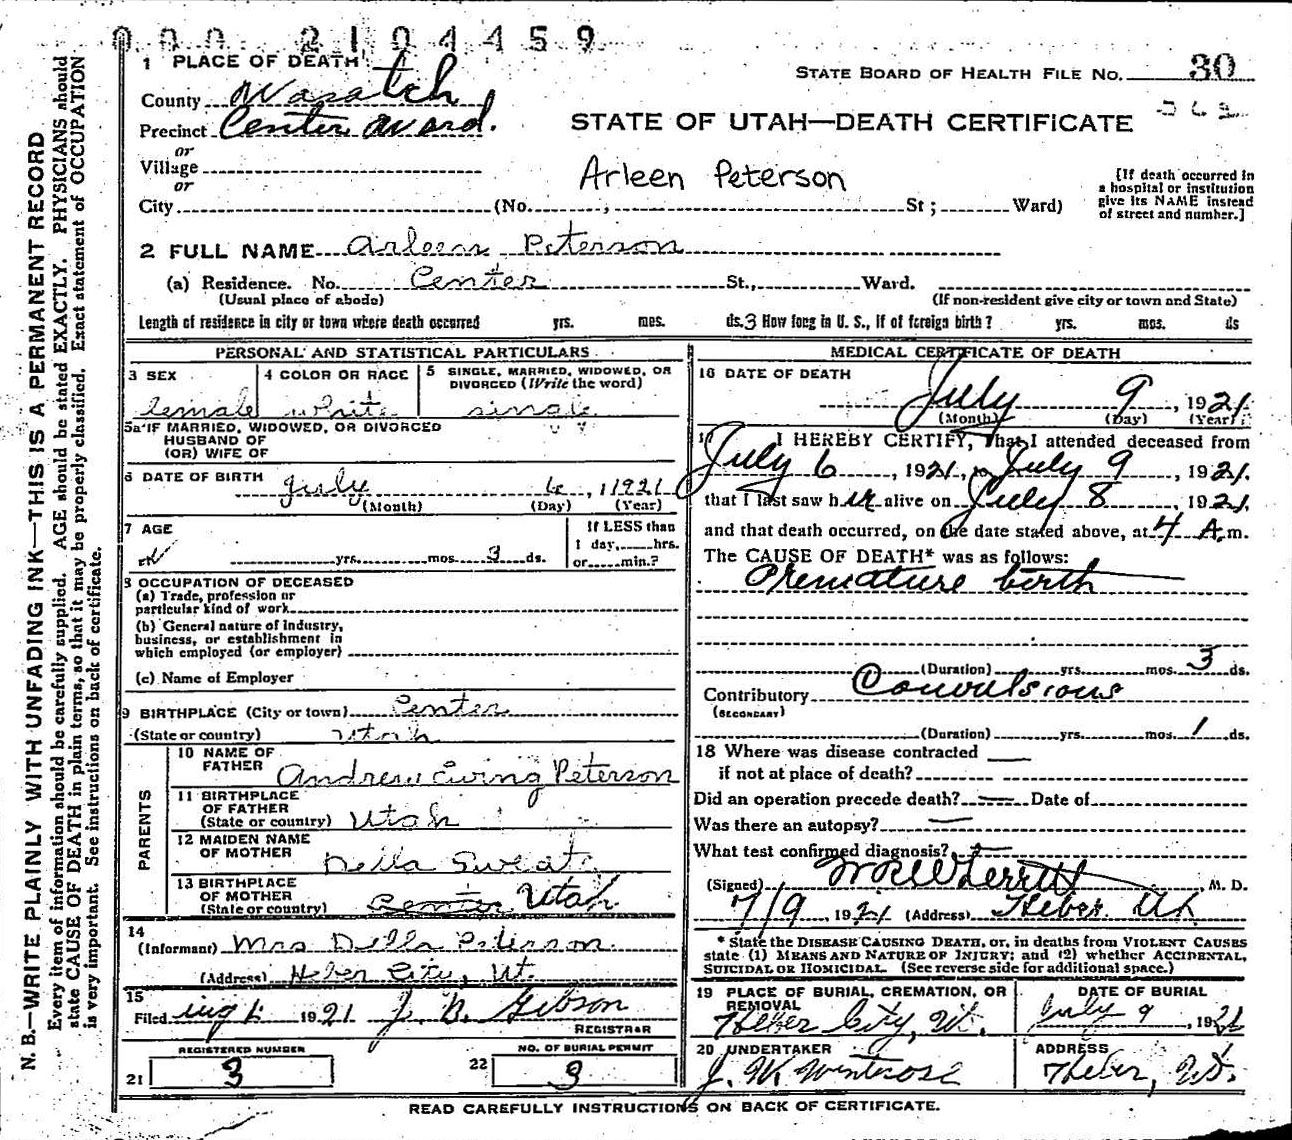 000 2104459
1 PLACE OF DEATH
STATE BOARD OF HEALTH FILE NO. 30
County Wasatch
Precinct Center Ward.
STATE OF UTAH—DEATH CERTIFICATE
or
Village
or
Arleen Peterson
[If death occurred in a hospital or institution give its NAME instead of street and number.]
City (No. , St ; Ward)
2 FULL NAME Arleen Peterson
(a) Residence. No. Center St., Ward.
(Usual place of abode) (If non-resident give city or town and State)
Length of residence in city or town where death occurred yrs. mos. ds. 3 How long in U. S., if of foreign birth? yrs. mos. ds
PERSONAL AND STATISTICAL PARTICULARS
3 SEX
female
4 COLOR OR RACE
white
5 SINGLE, MARRIED, WIDOWED, OR DIVORCED (Write the word)
single
5a IF MARRIED, WIDOWED, OR DIVORCED
HUSBAND OF
(OR) WIFE OF
6 DATE OF BIRTH July 6, 1921
(Month) (Day) (Year)
7 AGE
yrs. mos. 3 ds.
If LESS than
1 day, hrs.
or min.?
8 OCCUPATION OF DECEASED
(a) Trade, profession or
particular kind of work
(b) General nature of industry,
business, or establishment in
which employed (or employer)
(c) Name of Employer
9 BIRTHPLACE (City or town) Center
(State or country) Utah
PARENTS
10 NAME OF
FATHER Andrew Ewing Peterson
11 BIRTHPLACE
OF FATHER
(State or country) Utah
12 MAIDEN NAME
OF MOTHER Della Sweat
13 BIRTHPLACE
OF MOTHER
(State or country) Center Utah
14
(Informant) Mrs Della Peterson
(Address) Heber City, Ut.
15
Filed 1921 J. B. Gibson
REGISTRAR
REGISTERED NUMBER
21 3
NO. OF BURIAL PERMIT
22 3
MEDICAL CERTIFICATE OF DEATH
16 DATE OF DEATH
July 9, 1921
(Month) (Day) (Year)
17 I HEREBY CERTIFY, That I attended deceased from
July 6, 1921, to July 9, 1921.
that I last saw her alive on July 8, 1921,
and that death occurred, on the date stated above, at 4 A.m.
The CAUSE OF DEATH* was as follows:
Premature birth
(Duration) yrs. mos. 3 ds.
Contributory Convulsions
(SECONDARY)
(Duration) yrs. mos. 1 ds.
18 Where was disease contracted
if not at place of death?
Did an operation precede death? Date of
Was there an autopsy?
What test confirmed diagnosis?
(Signed) , M. D.
7/9, 1921 (Address) Heber Ut
* State the DISEASE CAUSING DEATH, or, in deaths from VIOLENT CAUSES
state (1) MEANS AND NATURE OF INJURY; and (2) whether ACCIDENTAL,
SUICIDAL OR HOMICIDAL. (See reverse side for additional space.)
19 PLACE OF BURIAL, CREMATION, OR
REMOVAL
Heber City, Ut.
DATE OF BURIAL
July 9, 1921
20 UNDERTAKER
J. W. Winterose
ADDRESS
Heber, Ut.
READ CAREFULLY INSTRUCTIONS ON BACK OF CERTIFICATE.
N. B.—WRITE PLAINLY WITH UNFADING INK—THIS IS A PERMANENT RECORD
Every item of information should be carefully supplied. AGE should be stated EXACTLY. PHYSICIANS should
state CAUSE OF DEATH in plain terms, so that it may be properly classified. Exact statement of OCCUPATION
is very important. See instructions on back of certificate.